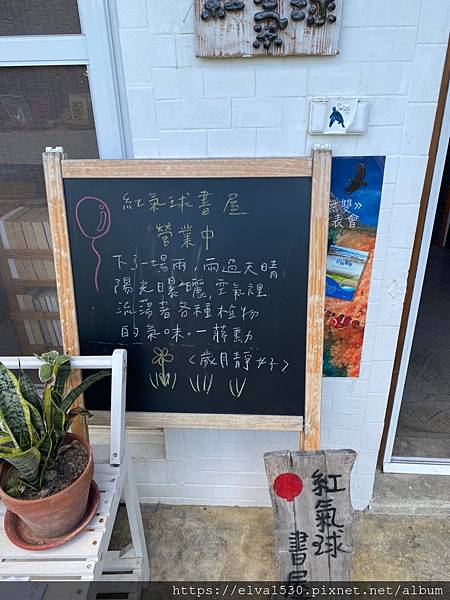 紅氣球
紅氣球書屋
營業中
下了一場雨，雨過天晴，
陽光曝曬，空氣裡
流蕩著各種植物
的氣味。—蔣勳
<歲月靜好>
無雙》
表會
紅氣球
書屋
https://elva1530.pixnet.net/album